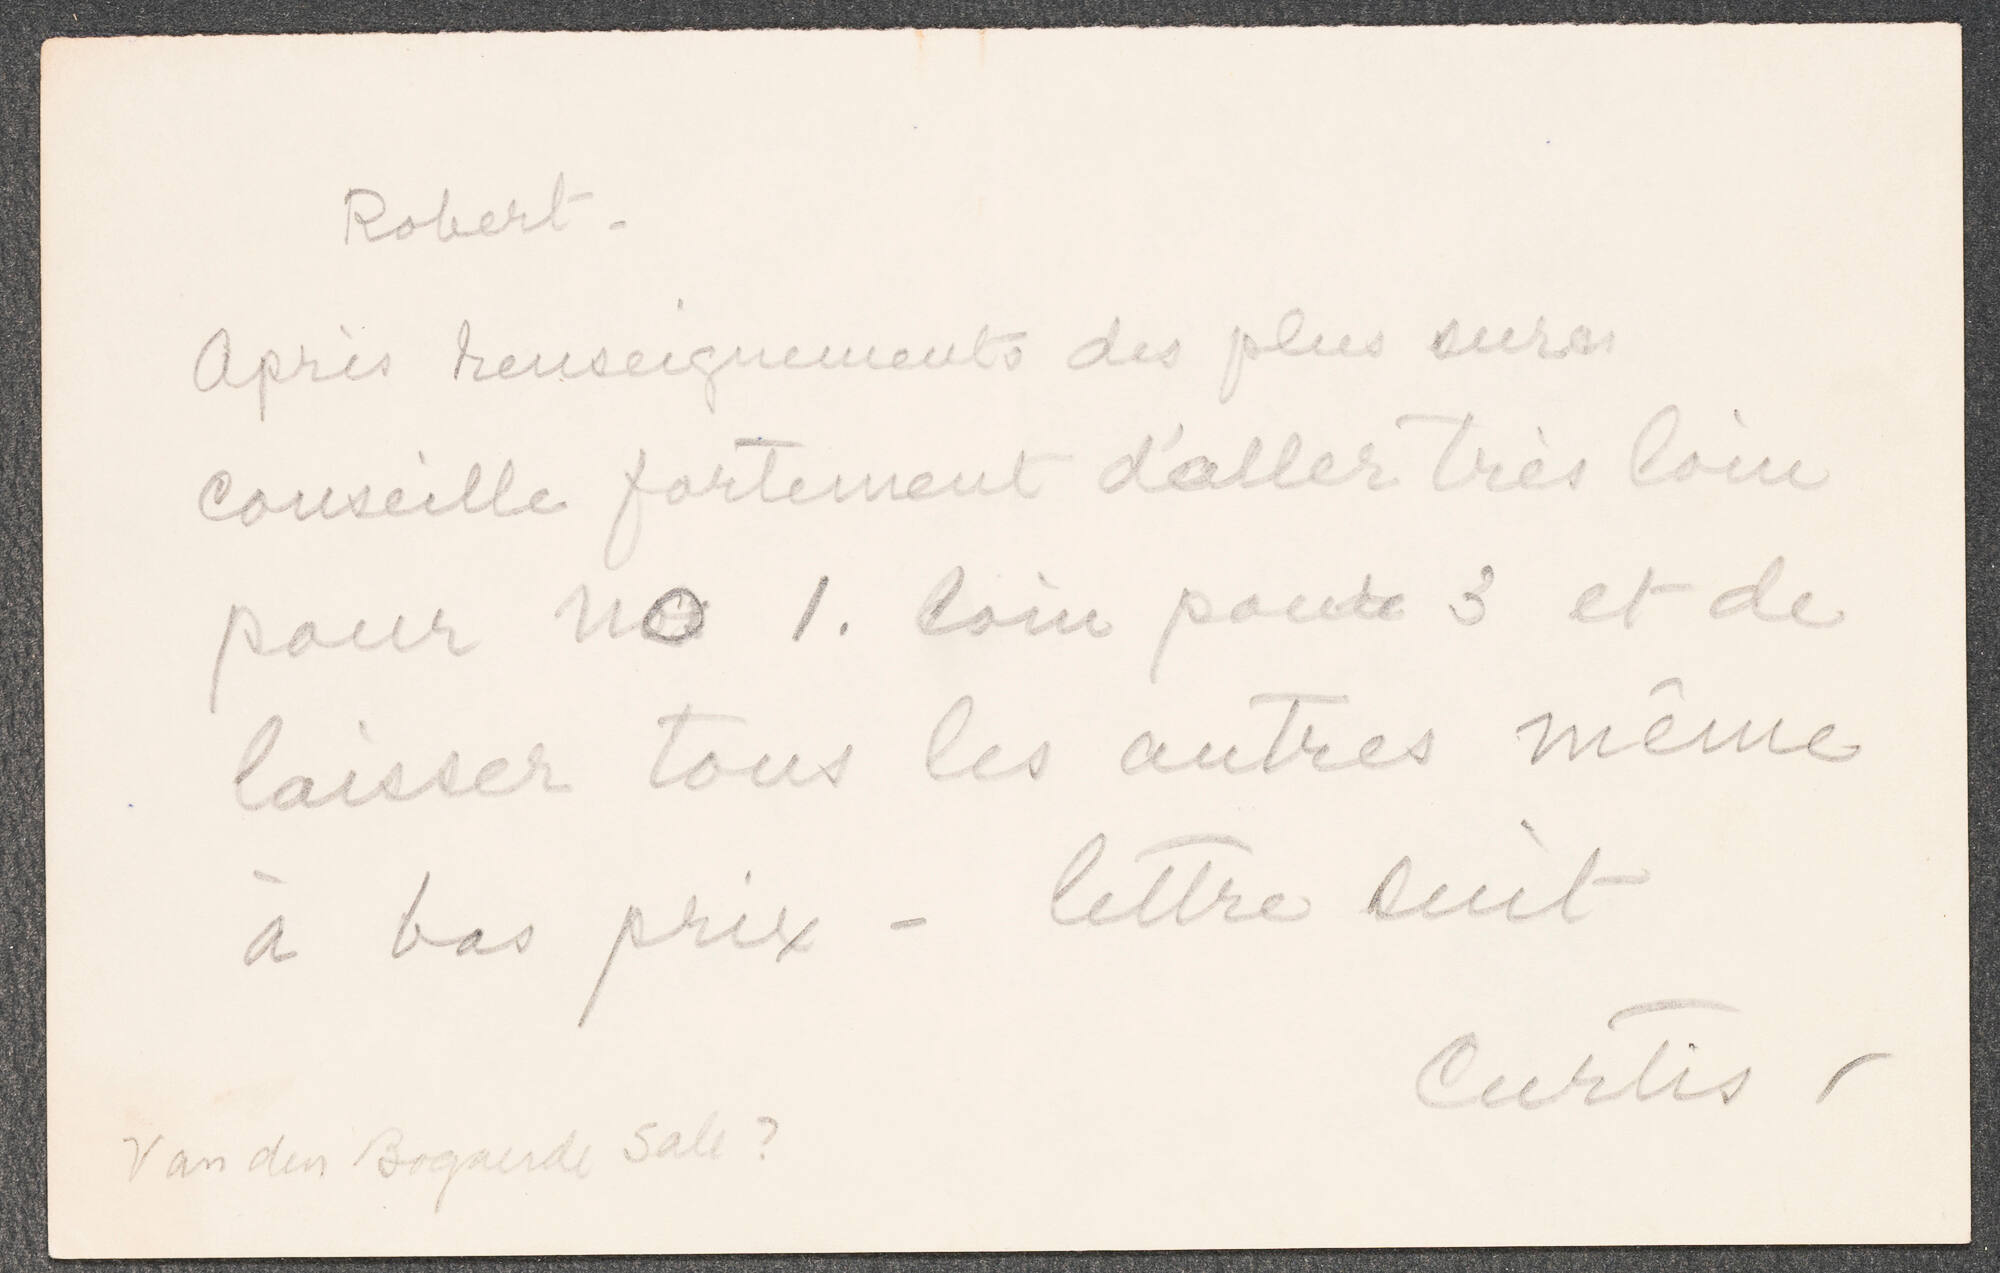 Robert -
Après renseignements des plus surs
conseille fortement d'aller très loin
pour no 1. loin pour 3 et de
laisser tous les autres même
à bas prix - lettre suit
Curtis
Van den Bogaerde Sale?